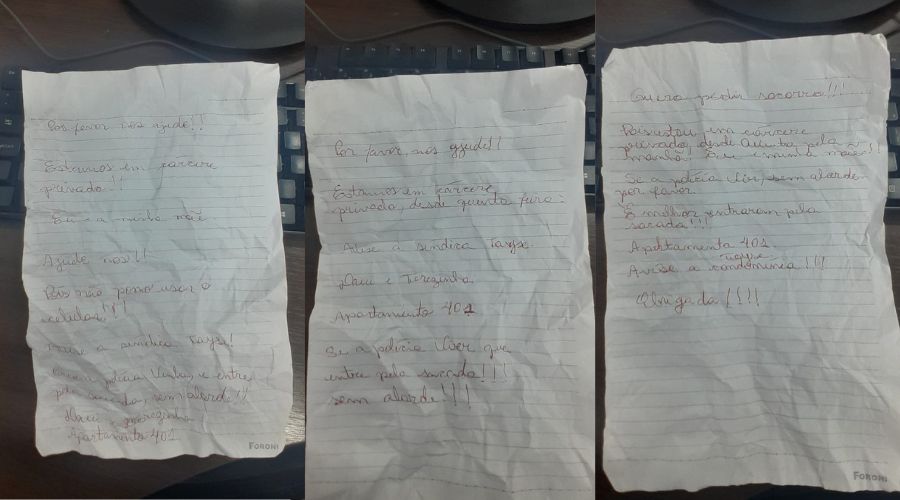 Por favor nos ajude!!
Estamos em carcere
privado!!
Eu e a minha mãe
Ajude nos!!
Pois não posso usar o
celular!!!
a sindica Tayse!
e entre
pela sacada, sem alarde!!
Apartamento 401
FORONI
Por favor, nos ajude!!
Estamos em cárcere
privado, desde quinta feira.
Avise a sindica Tayse.
e Terezinha
Apartamento 401
Se a polícia vier que
entre pela sacada!!!
sem alarde!!!
Quero pedir socorro!!!
Pois estou em cárcere
privado, desde quinta pela
manhã. Eu e minha mãe!!
Se a polícia vier, sem alarde
por favor
É melhor entrarem pela
sacada!!!
Apartamento 401
Tayse
Avise a condominia!!!
Obrigada!!!!
FORONI